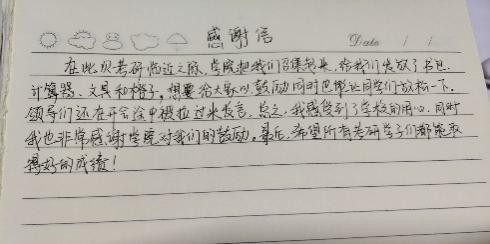 感谢信
Date / /
在此贝考研临近之际,学院把我们召集起来,给我们发放了书包、
计算器、文具和橙子,想要给大家以鼓励同时也能让同学们放松一下。
领导们还在开会途中被拉过来发言,总之,我感受到了学校的用心。同时
我也非常感谢学院对我们的鼓励。最后,希望所有考研学子们都能取
得好的成绩!